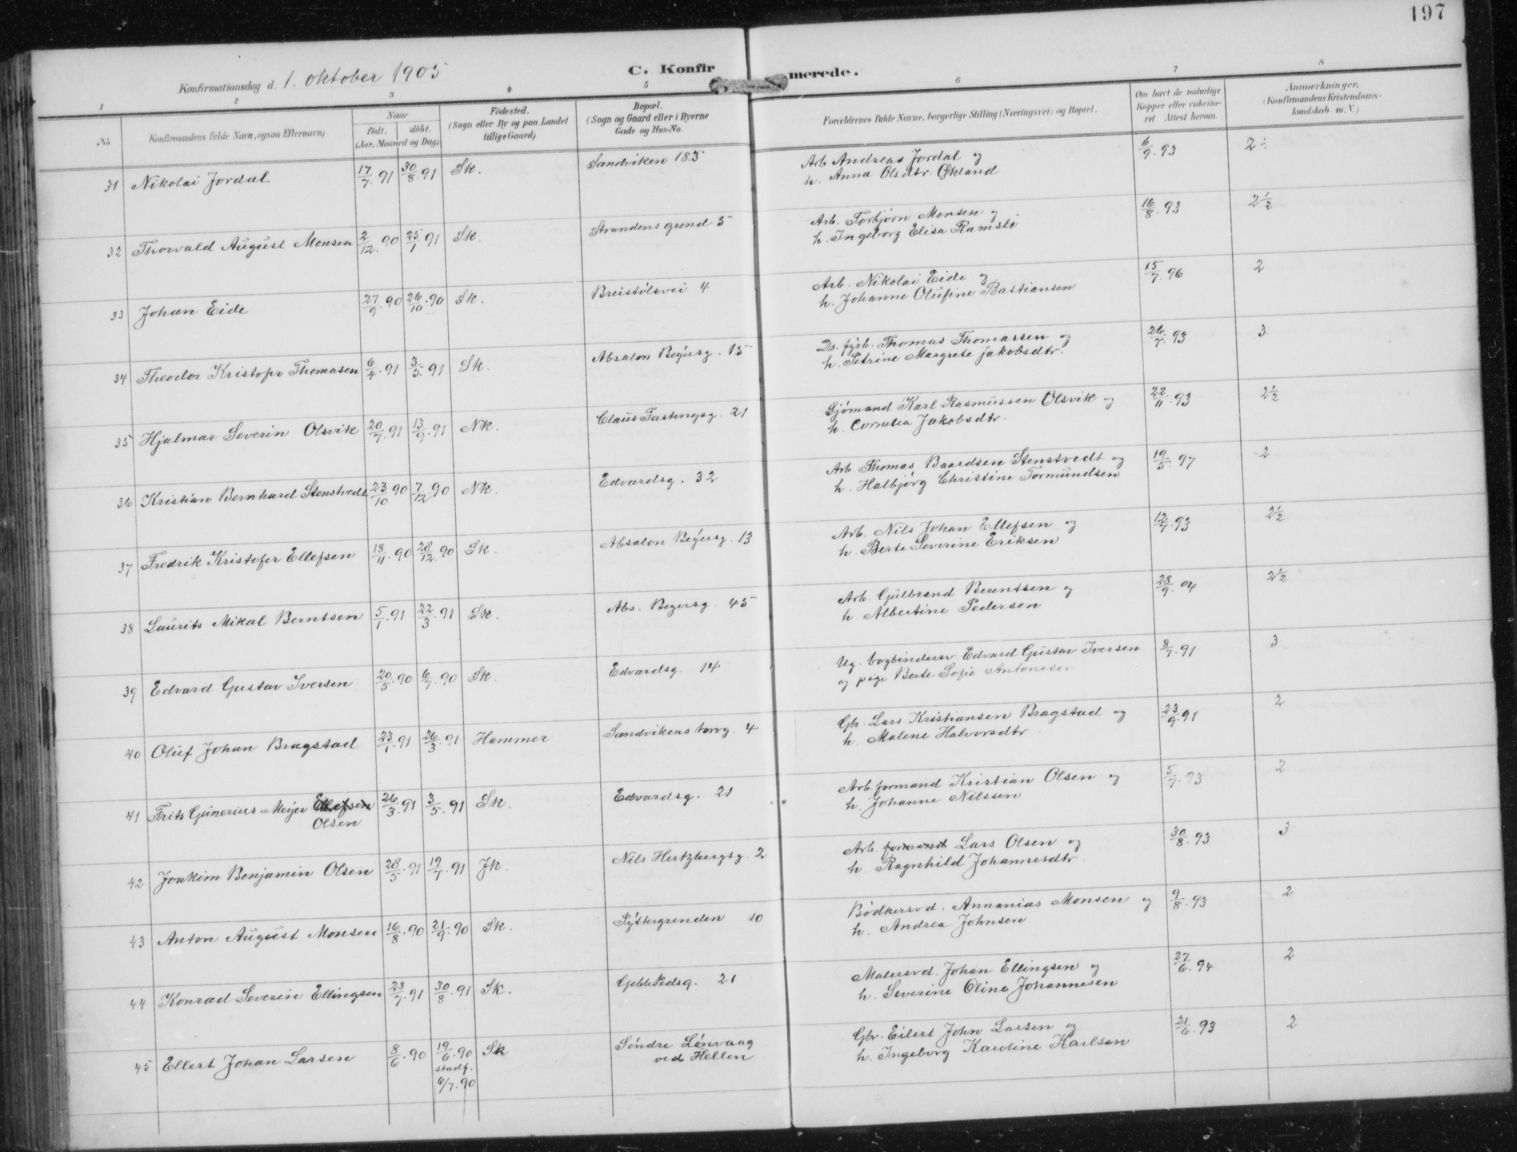 197
Konfirmationsdag d. 1. oktober 1905
C. Konfirmerede.
1 2 3 4 5 6 7 8
No. Konfirmandens fulde Navn, ogsaa Efternavn) Naar Født. døbt. (Aar, Maaned og Dag) Fødested. (Sogn eller By og paa Landet tillige Gaard) Bopæl. (Sogn og Gaard eller i Byerne Gade og Hus-No. Forældrenes fulde Navne, borgerlige Stilling (Næringsvei) og Bopæl. Om havt de naturlige Kopper eller vakcineret Attest herom. Anmerkninger. (Konfirmandens Kristendomskundskab m. V.)
31 Nikolai Jordal 17/7. 91 30/8. 91 Sk. Sandviken 183 Arb. Andreas Jordal og 6/9. 93 2÷
h. Anna Olsdtr. Økland
32 Thorvald August Monsen 2/12. 90 25/1 91 Sk. Strandens grend 5 Arb. Torbjørn Monsen og 16/8. 93 2½
h. Ingeborg Elisa Ramslø
33 Johan Eide 27/9. 90 26/10. 90 Sk. Breistølsvei 4 Arb. Nikolai Eide og 15/7 96 2
h. Johanne Olufine Bastiansen
34 Theodor Kristofer Thomasen 6/4. 91 3/5. 91 Sk. Absalon Beyersg. 15 Ds. fyrb. Thomas Thomassen og 26/7. 93 3
h. Petrine Margrete Jakobsdtr.
35 Hjalmar Severin Olsvik 20/7. 91 13/9. 91 Nk. Claus Fastingsg. 21 Sjømand Karl Rasmussen Olsvik og 22/11. 93 2½
h. Cornelia Jakobsdtr.
36 Kristian Bernhard Stenstvedt 23/10 90 7/12. 90 Nk. Edvardsg. 32 Arb. Thomas Baardsen Stenstvedt og 19/5. 97 2
h. Halbjørg Christine Tormundsen
37 Fredrik Kristofer Ellefsen 18/11. 90 28/12. 90 Sk. Absalon Beyersg. 13 Arb. Nils Johan Ellefsen og 12/7. 93 2½
h. Berte Severine Eriksen
38 Laurits Mikal Berntsen 5/1. 91 22/3. 91 Sk. Abs. Beyersg. 45 Arb. Gulbrand Berentsen og 28/9. 04 2½
h. Albertine Pedersen
39 Edvard Gustav Iversen 20/5. 90 6/7. 90 Sk. Edvardsg. 14 Ug. bogbindersv. Edvard Gustav Iversen 8/7. 91 3
og pige Berte Sofie Antonesen
40 Oluf Johan Bragstad 23/1. 91 26/3. 91 Hammer Sandvikens torvg. 4 Gbr. Lars Kristiansen Bragstad og 23/9. 91 2
h. Malene Halvorsdtr
41 Frits Gunerius Meyer Ellefsen 26/3. 91 3/5. 91 Sk. Edvardsg. 21 Arb. formand Kristian Olsen og 5/7. 93 2
Olsen h. Johanne Nilssen
42 Joakim Benjamin Olsen 28/5. 91 19/7. 91 Jk. Nils Hertzbergsg. 2 Arb. formand Lars Olsen og 30/8. 93 3
h. Ragnhild Johannesdtr.
43 Anton August Monsen 16/8. 90 21/9. 90 Sk. 10 Bødkersvd. Annanias Monsen og 9/8. 93 2
h. Andrea Johnsen
44 Konrad Severin Ellingsen 28/7. 91 30/8. 91 Sk. 21 Malersvd. Johan Ellingsen og 27/6. 94 2
h. Severine Oline Johannesen
45 Ellert Johan Larsen 8/6. 90 19/6. 90 Sk Søndre Lønvaag Gbr. Eilert John Larsen og 21/6. 93 2
stadf. ved Hellen h. Ingeborg Karoline Karlsen
6/7. 90